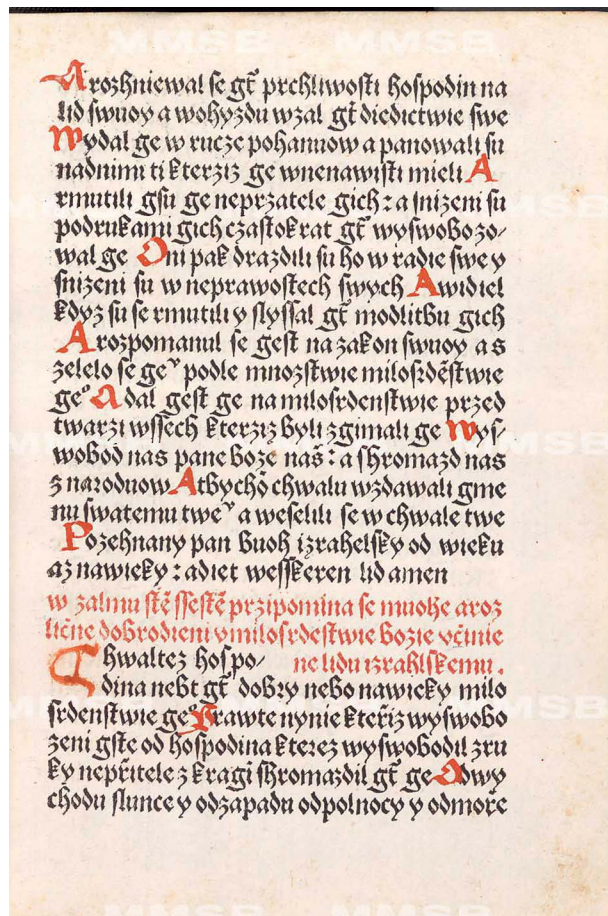 Arozhniewal se gt̃ prchliwosti hospodin na
lid swuoy a wohyzdu wzal gt̃ diedictwie swe
Wydal ge w rucze pohanuow a panowali su
nadnimi ti kterziz ge wnenawisti mieli A
rmutili gsu ge neprzatele gich : a snizeni su
podrukami gich czastokrat gt̃ wyswobozo/
wal ge Oni pak drazdili su ho w radie swe y
snizeni su w neprawostech swych A widiel
kdyz su se rmutili y slyssal gt̃ modlitbu gich
A rozpomanul se gest na zakon swuoy a s
zelelo se geᵒ podle mnozstwie milosrdẽstwie
geᵒ A dal gest ge na milosrdenstwie przed
twarzi wssech kterziz byli zgimali ge Wys/
wobod nas pane boze nas̃ : a shromazd nas
z naroduow Atbychõ chwalu wzdawali gme
nu swatemu tweᵒ a weselili se w chwale twe
Pozehnany pan buoh izrahelsky od wieku
az nawieky : a diet wesskeren lid amen
w zalmu stẽ ssestẽ przipomina se muohe a roz
lične dobrodieni y milosrdestwie bozie včinie
Chwaltez hospo/ ne lidu izrahlskemu .
dina nebt gt̃ dobry nebo nawieky milo
srdenstwie geᵒ Prawte nynie kteřiz wyswobo
zeni gste od hospodina kterez wyswobodil zru
ky nepřitele z kragĩ shromazdil gt̃ ge Odwy
chodu slunce y odzapadu odpolnocy y odmore
MMSB